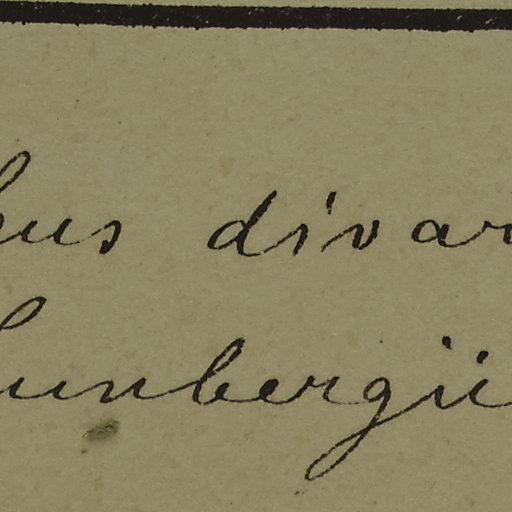 hus divar
hunbergii